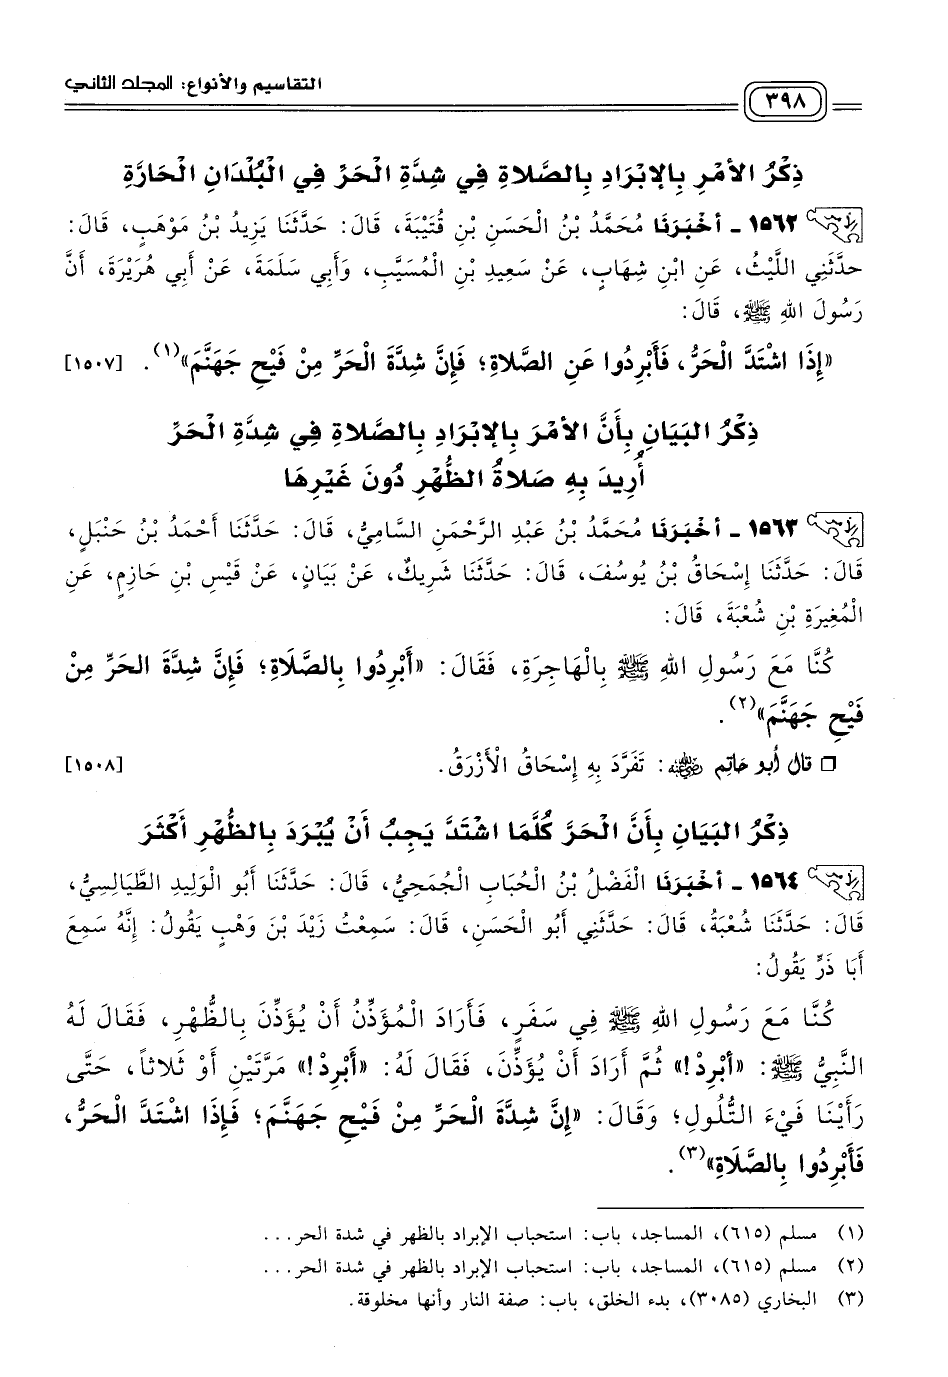 التقاسيم والأنواع: المجلد الثاني
٣٩٨
ذِكْرُ الأمْرِ بِالإبْرَادِ بِالصَّلاةِ فِي شِدَّةِ الْحَرِّ فِي الْبُلْدَانِ الْحَارَّةِ
١٥٦٢ - أخْبَرَنَا مُحَمَّدُ بْنُ الْحَسَنِ بْنِ قُتَيْبَةَ، قَالَ: حَدَّثَنَا يَزِيدُ بْنُ مَوْهَبٍ، قَالَ:
حدَّثَنِي اللَّيْثُ، عَنِ ابْنِ شِهَابٍ، عَنْ سَعِيدِ بْنِ الْمُسَيَّبِ، وَأَبِي سَلَمَةَ، عَنْ أَبِي هُرَيْرَةَ، أَنَّ
رَسُولَ اللهِ ﷺ، قَالَ:
«إِذَا اشْتَدَّ الْحَرُّ، فَأَبْرِدُوا عَنِ الصَّلَاةِ؛ فَإِنَّ شِدَّةَ الْحَرِّ مِنْ فَيْحِ جَهَنَّمَ»(١). [١٥٠٧]
ذِكْرُ البَيَانِ بِأَنَّ الأمْرَ بِالإبْرَادِ بِالصَّلاةِ فِي شِدَّةِ الْحَرِّ
أُرِيدَ بِهِ صَلاةُ الظُّهْرِ دُونَ غَيْرِهَا
١٥٦٣ - أخْبَرَنَا مُحَمَّدُ بْنُ عَبْدِ الرَّحْمَنِ السَّامِيُّ، قَالَ: حَدَّثَنَا أَحْمَدُ بْنُ حَنْبَلٍ،
قَالَ: حَدَّثَنَا إِسْحَاقُ بْنُ يُوسُفَ، قَالَ: حَدَّثَنَا شَرِيكٌ، عَنْ بَيَانٍ، عَنْ قَيْسِ بْنِ حَازِمٍ، عَنِ
الْمُغِيرَةِ بْنِ شُعْبَةَ، قَالَ:
كُنَّا مَعَ رَسُولِ اللهِ ﷺ بِالْهَاجِرَةِ، فَقَالَ: «أَبْرِدُوا بِالصَّلَاةِ؛ فَإِنَّ شِدَّةَ الحَرِّ مِنْ
فَيْحِ جَهَنَّمَ»(٢).
□ قال أبو حاتم ﵁: تَفَرَّدَ بِهِ إِسْحَاقُ الْأَزْرَقُ. [١٥٠٨]
ذِكْرُ البَيَانِ بِأَنَّ الْحَرَّ كُلَّمَا اشْتَدَّ يَجِبُ أَنْ يُبْرَدَ بِالظُّهْرِ أَكْثَرَ
١٥٦٤ - أخْبَرَنَا الْفَضْلُ بْنُ الْحُبَابِ الْجُمَحِيُّ، قَالَ: حَدَّثَنَا أَبُو الْوَلِيدِ الطَّيَالِسِيُّ،
قَالَ: حَدَّثَنَا شُعْبَةُ، قَالَ: حَدَّثَنِي أَبُو الْحَسَنِ، قَالَ: سَمِعْتُ زَيْدَ بْنَ وَهْبٍ يَقُولُ: إِنَّهُ سَمِعَ
أَبَا ذَرٍّ يَقُولُ:
كُنَّا مَعَ رَسُولِ اللهِ ﷺ فِي سَفَرٍ، فَأَرَادَ الْمُؤَذِّنُ أَنْ يُؤَذِّنَ بِالظُّهْرِ، فَقَالَ لَهُ
النَّبِيُّ ﷺ: «أَبْرِدْ!» ثُمَّ أَرَادَ أَنْ يُؤَذِّنَ، فَقَالَ لَهُ: «أَبْرِدْ!» مَرَّتَيْنِ أَوْ ثَلَاثاً، حَتَّى
رَأَيْنَا فَيْءَ التُّلُولِ؛ وَقَالَ: «إِنَّ شِدَّةَ الْحَرِّ مِنْ فَيْحِ جَهَنَّمَ؛ فَإِذَا اشْتَدَّ الْحَرُّ،
فَأَبْرِدُوا بِالصَّلَاةِ»(٣).
(١) مسلم (٦١٥)، المساجد، باب: استحباب الإبراد بالظهر في شدة الحر...
(٢) مسلم (٦١٥)، المساجد، باب: استحباب الإبراد بالظهر في شدة الحر...
(٣) البخاري (٣٠٨٥)، بدء الخلق، باب: صفة النار وأنها مخلوقة.